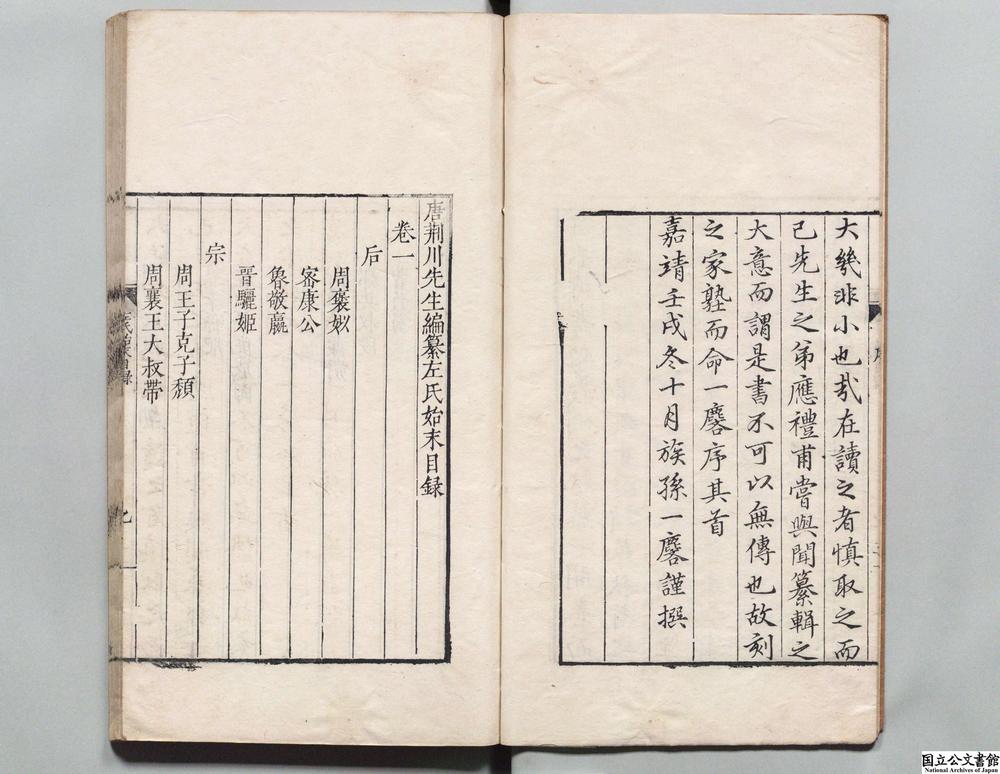 大幾非小也哉在讀之者慎取之而
己先生之弟應禮甫嘗與聞纂輯之
大意而謂是書不可以無傳也故刻
之家塾而命一麐序其首
嘉靖壬戌冬十月族孫一麐謹撰
唐荊川先生編纂左氏始末目録
卷一
后
周褒姒
密康公
魯敬嬴
晉驪姬
宗
周王子克子頹
周襄王大叔帶
国立公文書館
National Archives of Japan